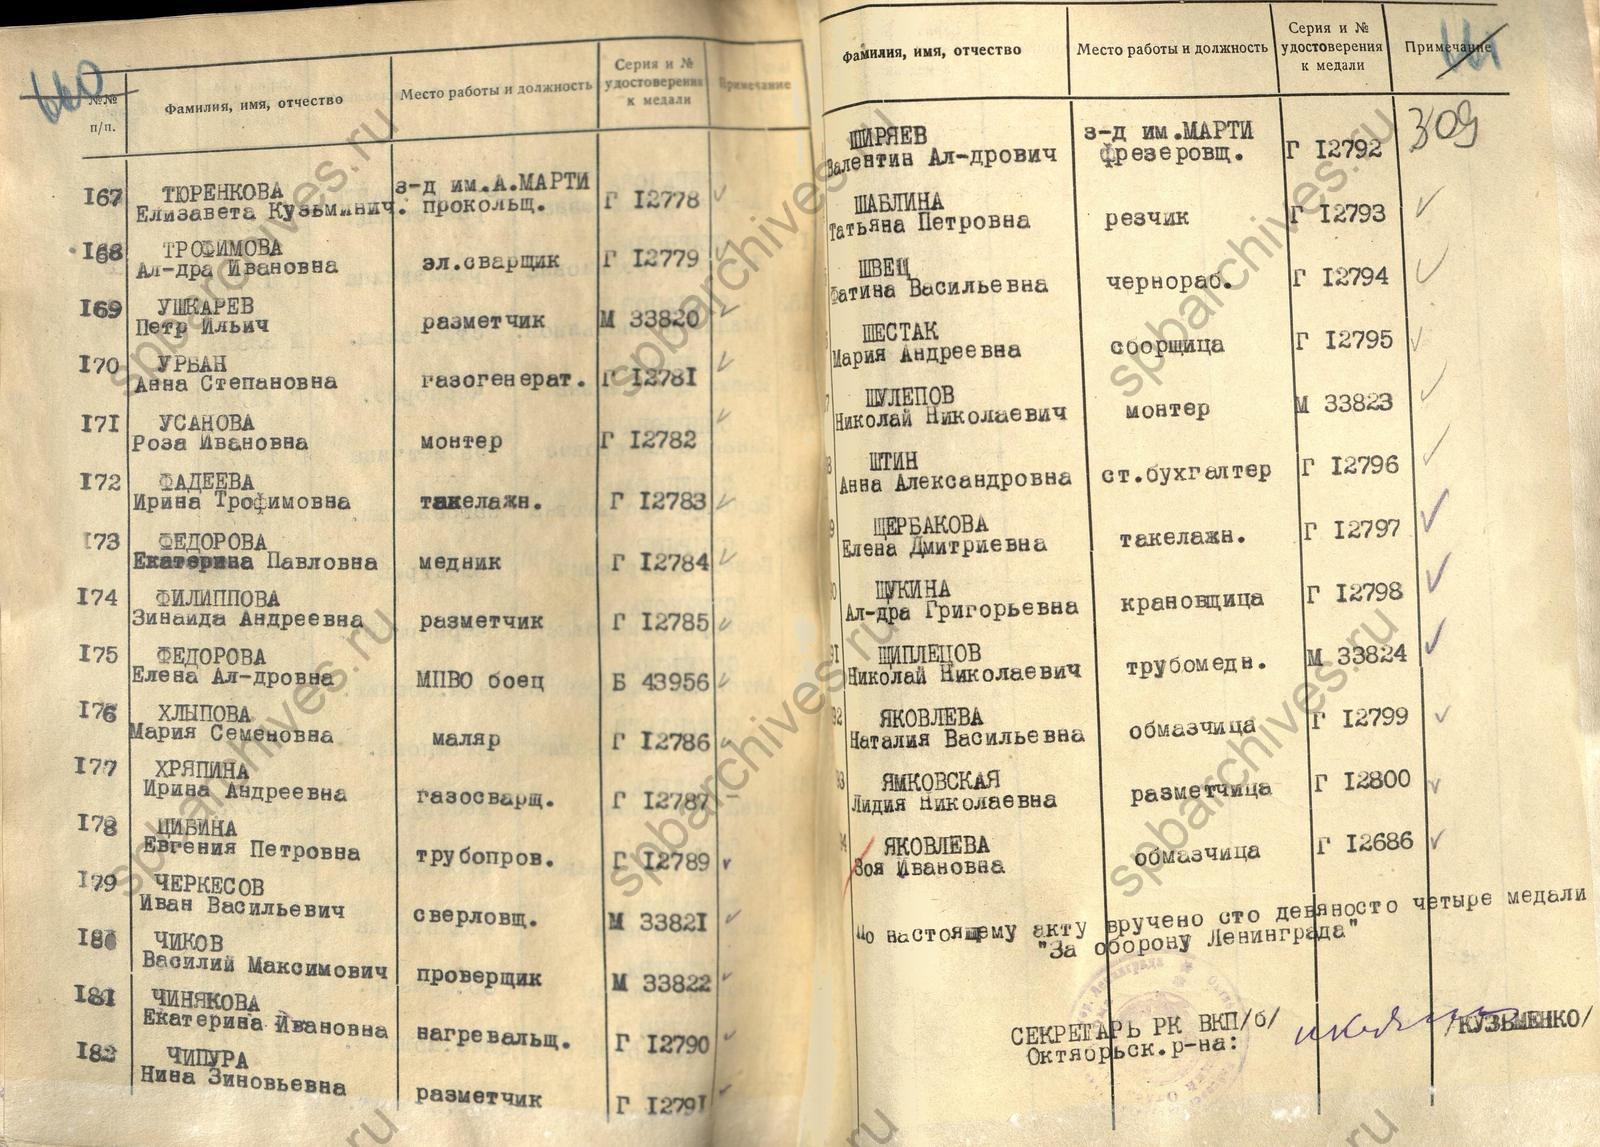 №№ п/п.
Фамилия, имя, отчество
Место работы и должность
Серия и № удостоверения к медали
Примечание
167 ТЮРЕНКОВА з-д им.А.МАРТИ
Елизавета Кузьминич. прокольщ. Г 12778
168 ТРОФИМОВА
Ал-дра Ивановна эл.сварщик Г 12779
169 УШКАРЕВ
Петр Ильич разметчик М 33820
170 УРБАН
Анна Степановна газогенерат. Г 12781
171 УСАНОВА
Роза Ивановна монтер Г 12782
172 ФАДЕЕВА
Ирина Трофимовна такелажн. Г 12783
173 ФЕДОРОВА
Екатерина Павловна медник Г 12784
174 ФИЛИППОВА
Зинаида Андреевна разметчик Г 12785
175 ФЕДОРОВА
Елена Ал-дровна МПВО боец Б 43956
176 ХЛЫПОВА
Мария Семеновна маляр Г 12786
177 ХРЯПИНА
Ирина Андреевна газосварщ. Г 12787
178 ЦИВИНА
Евгения Петровна трубопров. Г 12789
179 ЧЕРКЕСОВ
Иван Васильевич сверловщ. М 33821
180 ЧИКОВ
Василий Максимович проверщик М 33822
181 ЧИНЯКОВА
Екатерина Ивановна нагревальщ. Г 12790
182 ЧИПУРА
Нина Зиновьевна разметчик Г 12791
Фамилия, имя, отчество
Место работы и должность
Серия и № удостоверения к медали
Примечание
309
ШИРЯЕВ з-д им.МАРТИ
Валентин Ал-дрович фрезеровщ. Г 12792
ШАБЛИНА
Татьяна Петровна резчик Г 12793
ШВЕЦ
Фатина Васильевна чернораб. Г 12794
ШЕСТАК
Мария Андреевна сборщица Г 12795
ШУЛЕПОВ
Николай Николаевич монтер М 33823
ШТИН
Анна Александровна ст.бухгалтер Г 12796
ЩЕРБАКОВА
Елена Дмитриевна такелажн. Г 12797
ЩУКИНА
Ал-дра Григорьевна крановщица Г 12798
ЩИПЛЕЦОВ
Николай Николаевич трубомедн. М 33824
ЯКОВЛЕВА
Наталия Васильевна обмазчица Г 12799
ЯМКОВСКАЯ
Лидия Николаевна разметчица Г 12800
ЯКОВЛЕВА
Зоя Ивановна обмазчица Г 12686
По настоящему акту вручено сто девяносто четыре медали
"За оборону Ленинграда"
СЕКРЕТАРЬ РК ВКП/б/
Октябрьск.р-на: /КУЗЬМЕНКО/
spbarchives.ru